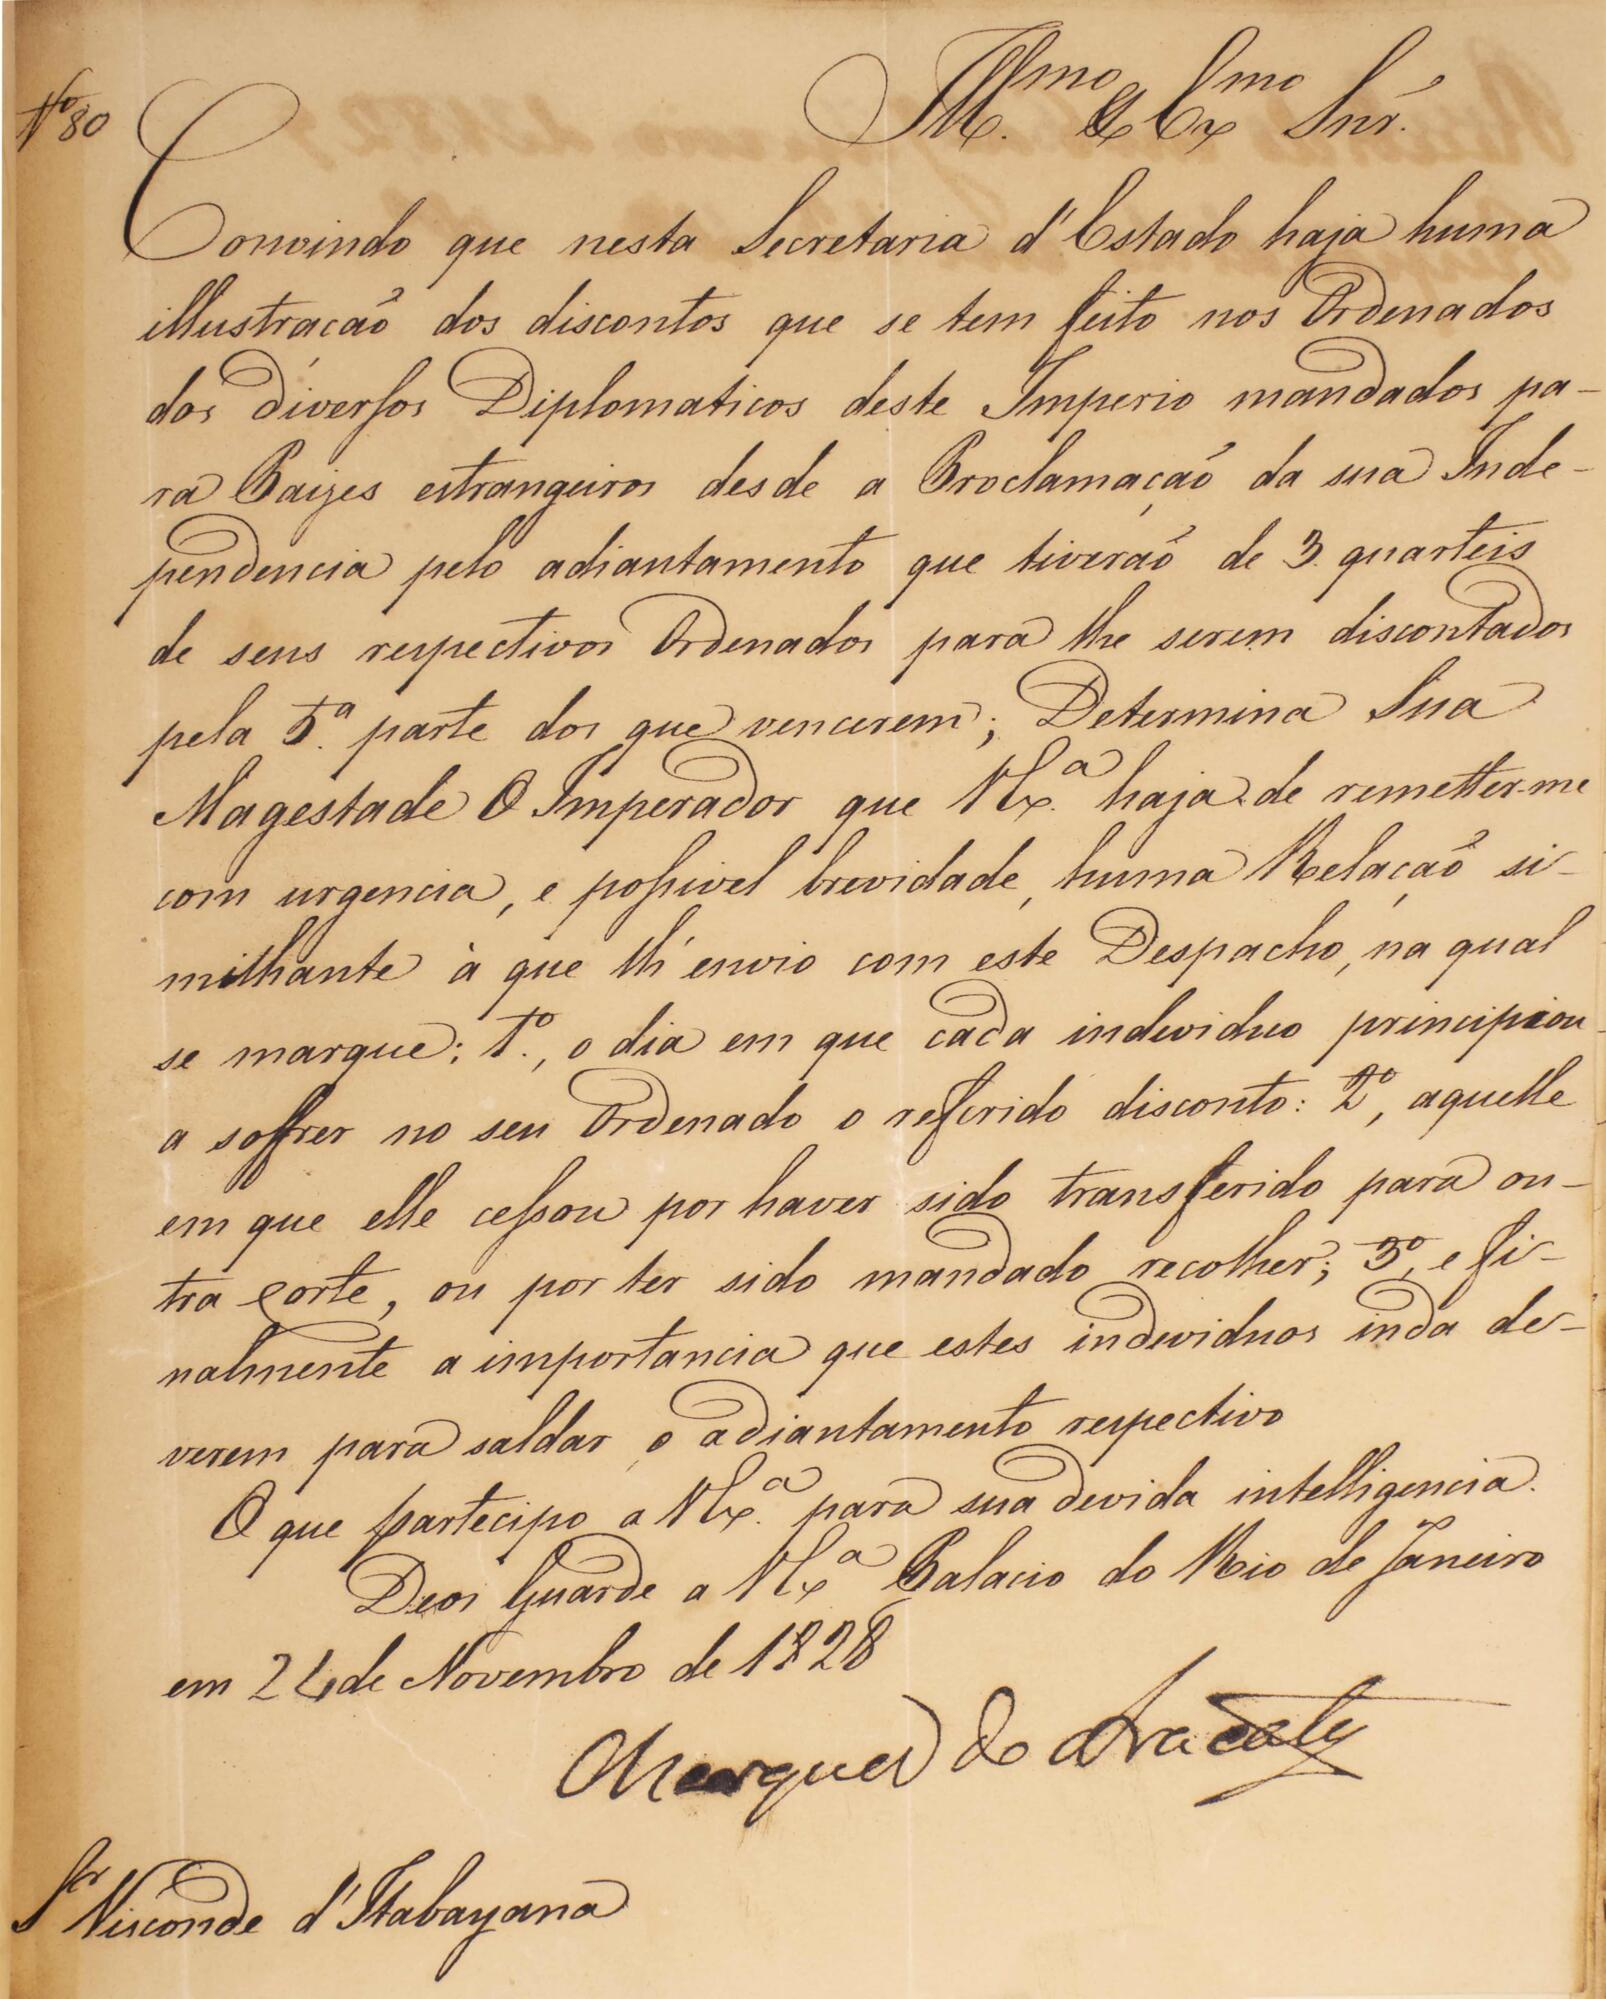 Nº 80
Illmo. e Exmo Snr.
Convindo que nesta Secretaria d'Estado haja huma
illustracaõ dos discontos que se tem feito nos Ordenados
dos diversos Diplomaticos deste Imperio mandados pa-
ra Paizes estrangeiros desde a Proclamaçaõ da sua Inde-
pendencia pelo adiantamento que tiveraõ de 3 quarteis
de seus respectivos Ordenados para lhe serem discontados
pela 5.ª parte dos que vencerem; Determina Sua
Magestade O Imperador que VEx.ª haja de remetter-me
com urgencia, e possivel brevidade, huma Relaçaõ si-
milhante à que lh'envio com este Despacho, na qual
se marque: 1.º, o dia em que cada individuo principiou
a soffrer no seu Ordenado o referido disconto: 2º, aquelle
em que elle cessou por haver sido transferido para ou-
tra Corte, ou por ter sido mandado recolher; 3º, e fi-
nalmente a importancia que estes individuos inda de-
verem para saldar o adiantamento respectivo
O que partecipo a VEx.ª para sua devida intelligencia.
Deos Guarde a VExª Palacio do Rio de Janeiro
em 24 de Novembro de 1828
Marquez do Aracaty
Sr Visconde d'Itabayana